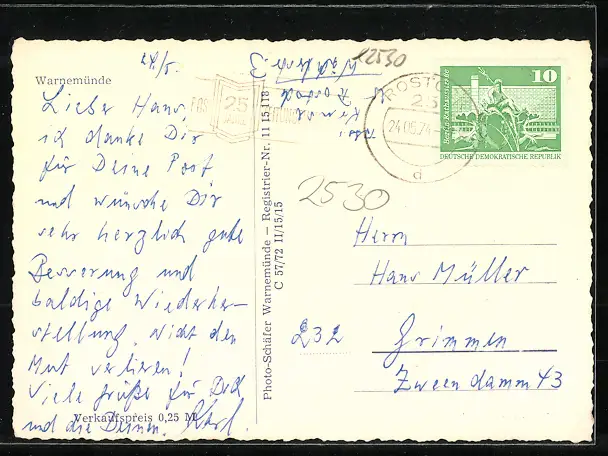 24/5.
Warnemünde
Lieber Hans,
ich danke Dir
für Deine Post
und wünsche Dir
sehr herzlich gute
Besserung und
baldige Wiederher-
stellung. Nicht den
Mut verlieren!
Viele Grüße für Dich
und die Deinen. Karl.
Verkaufspreis 0,25 M
Photo-Schäfer Warnemünde — Registrier-Nr. 11 15 118
C 57/72 II/15/15
12530
25
JAHRE
ROSTOCK
25
24.05.74
d
10
Berlin, Rathausstraße
DEUTSCHE DEMOKRATISCHE REPUBLIK
Rostock
2530
Herrn
Hans Müller
232 Grimmen
Zweendamm 43